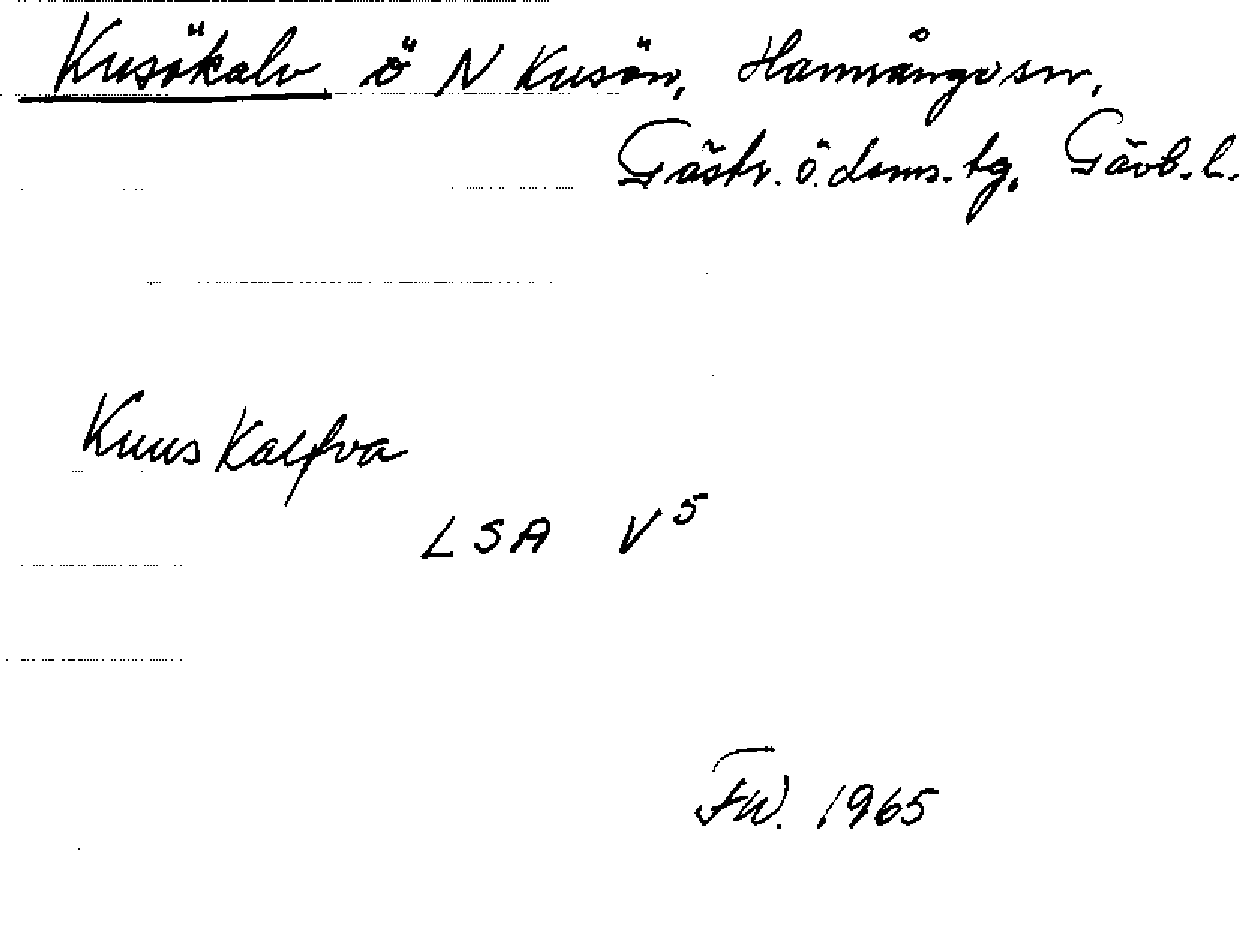 Kusökalv ö N Kusön, Hamrångesn,
Gästr. ö. doms. tg. Gävb. l.
Kuus Kalfva
LSA V5
FW. 1965